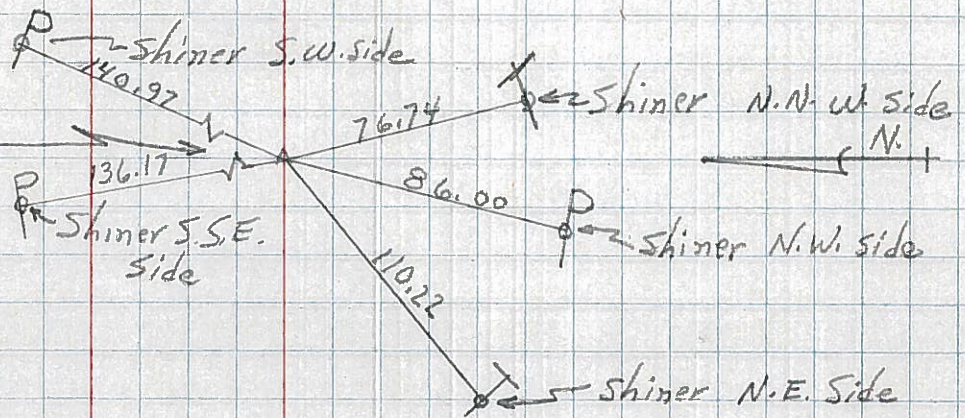 Shiner S.W. side
140.97
76.74
Shiner N.N.W. side
N.
136.17
86.00
Shiner S.S.E.
side
Shiner N.W. side
110.22
Shiner N.E. Side